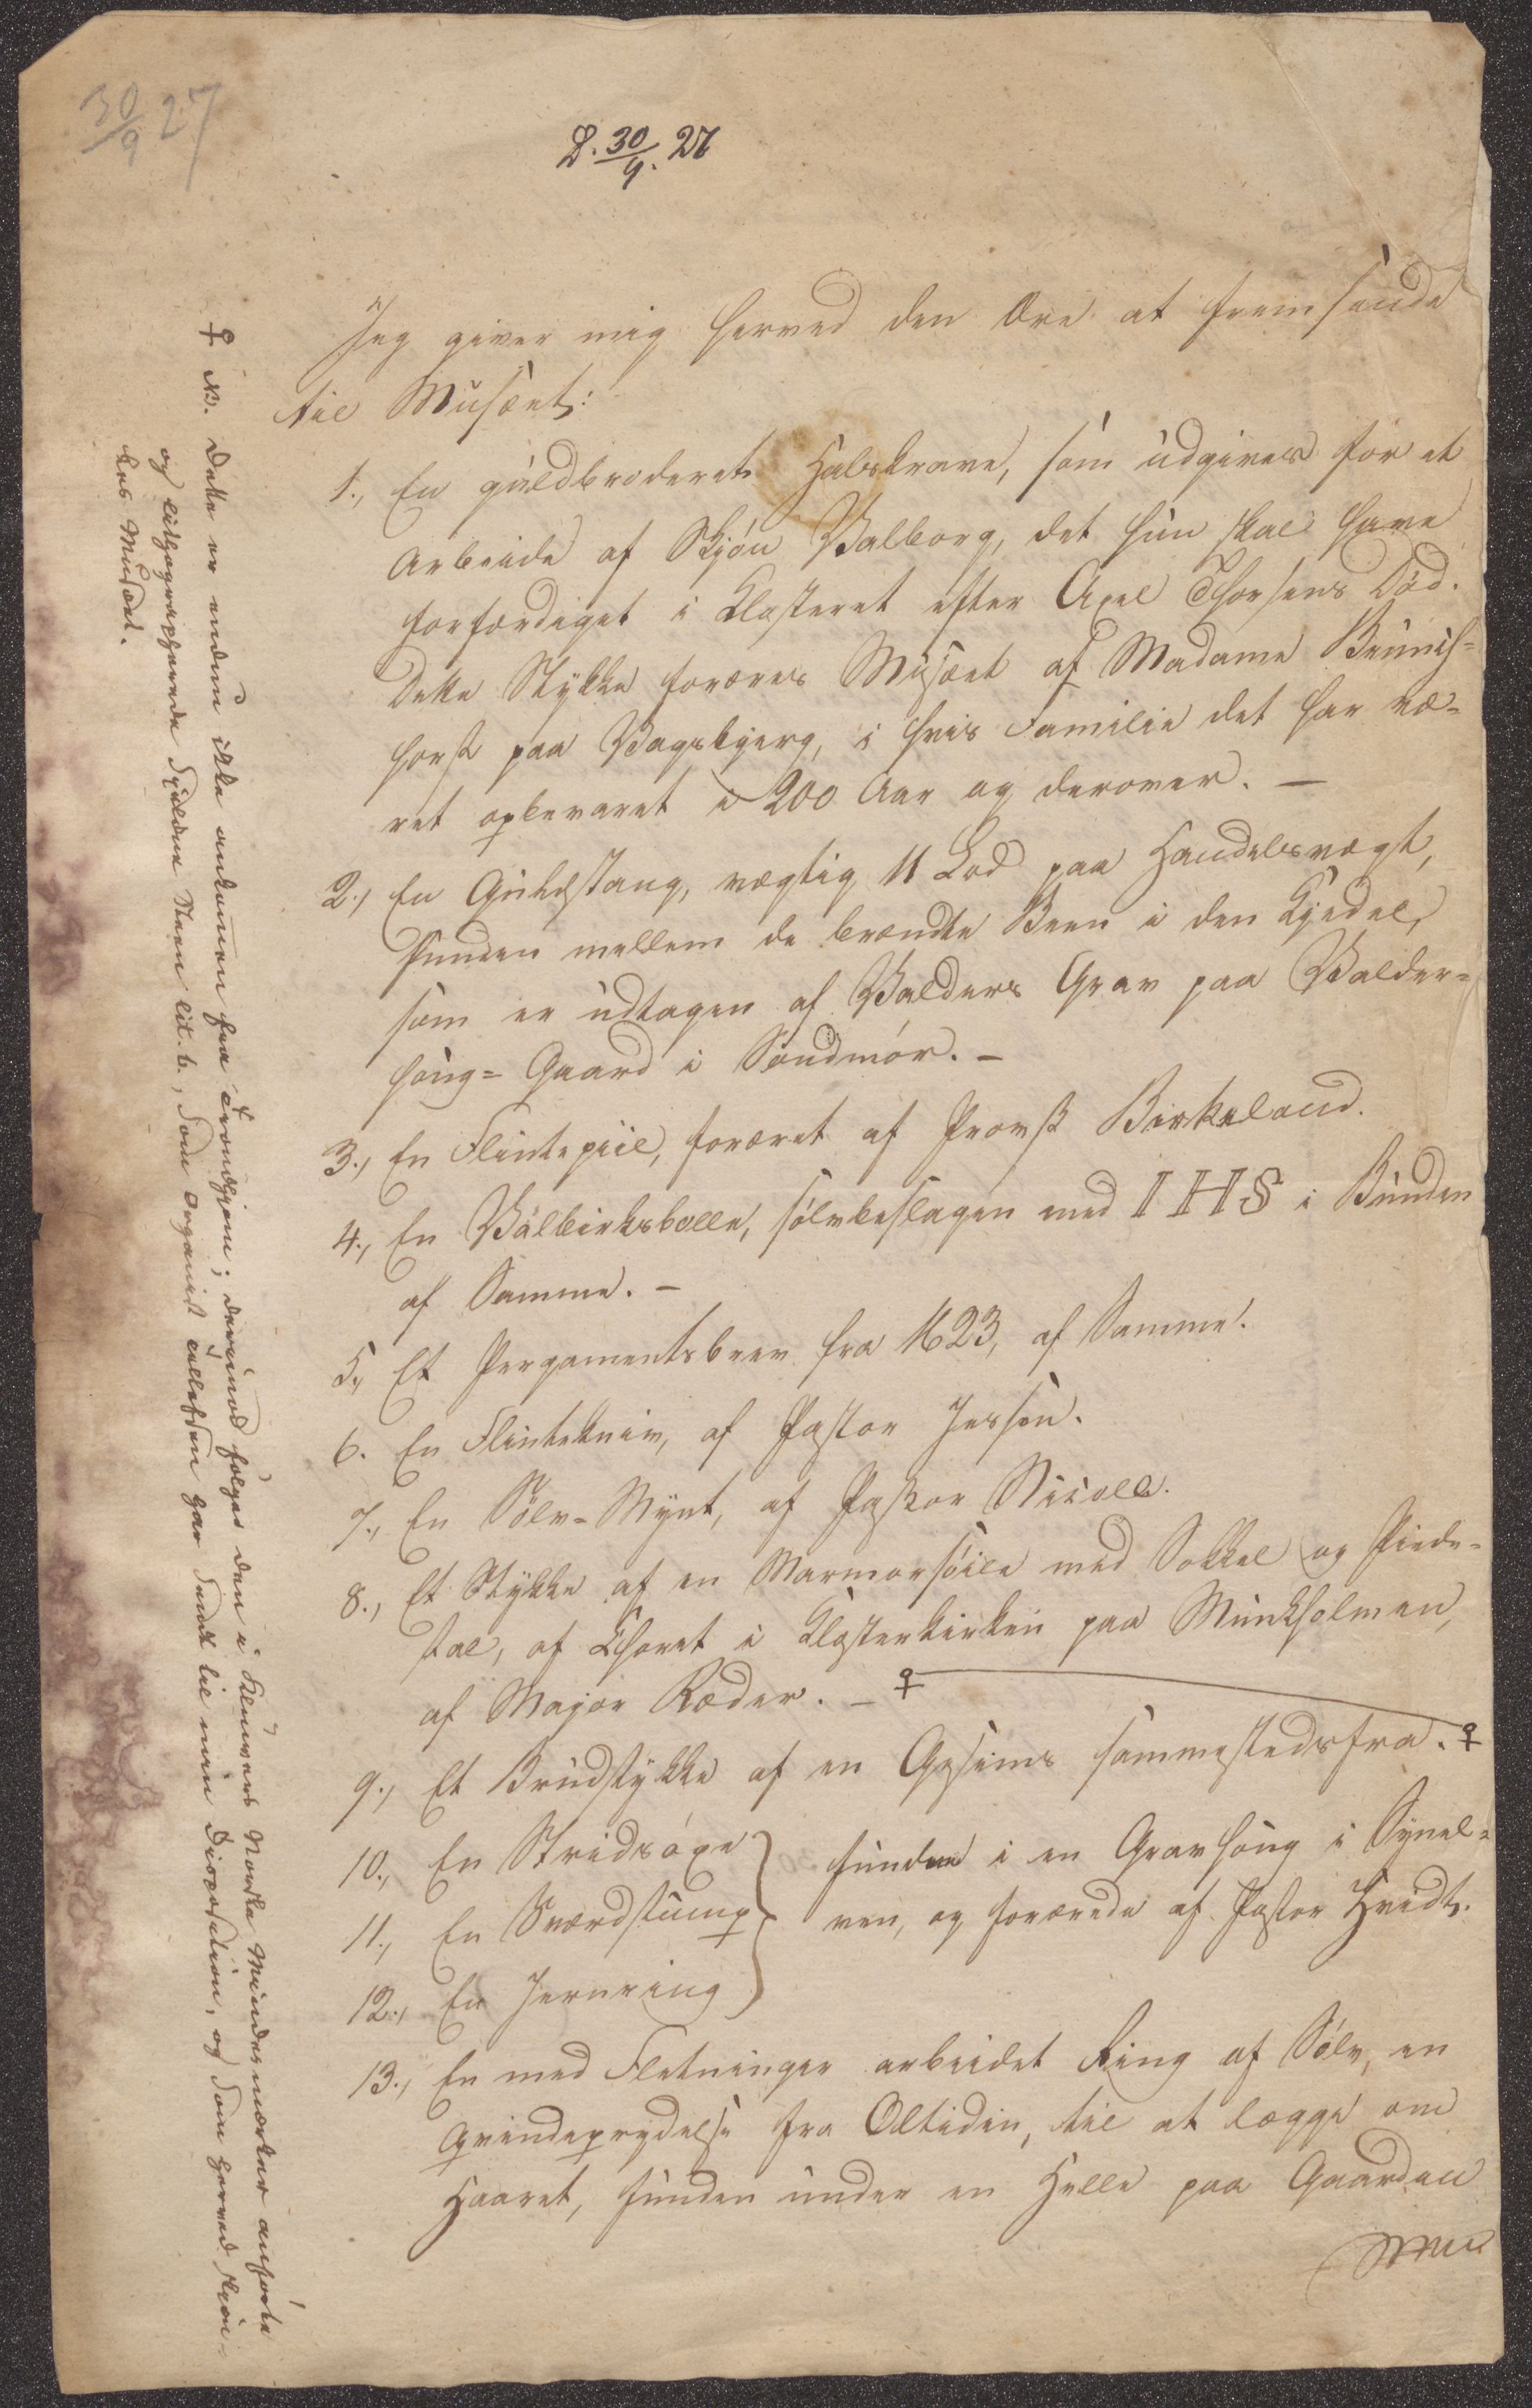 30/9 27
D. 30/9. 27
Jeg giver mig herved den Ære at fremsende
til Musæet:
1., En guldbroderet Halskrave, som udgives for et
Arbeide af Skjön Valborg, det hun skal have
forfærdiget i Klosteret efter Axel Thorsens Död.
Dette Stykke foræres Musæet af Madame Brunch=
horst paa Vagsbjerg, i hvis Familie det har væ=
ret opbevaret i 200 Aar og derover. —
2., En Guldstang, vægtig 11 Lod paa Handelsvægt,
funden mellem de brændte Been i den Kjedel,
som er udtagen af Balders Grav paa Balders=
houg=Gaard i Söndmör. –
3., En Flintepiil, foræret af Provst Birkeland.
4., En Valbirksbolle, sölvbeslagen med IHS i Bunden
af Samme. –
5., Et Pergamentsbrev fra 1623, af Samme.
6. En Flintekniv, af Pastor Jessen.
7., En Sölv=Mynt, af Pastor Nicoll.
8., Et Stykke af en Marmorsöile med Sokkel og Piede=
stal, af Choret i Klosterkirken paa Munkholmen,
af Major Ræder. – ♀
9., Et Brudstykke af en Gesims sammestedsfra. ♀
10., En Stridsöxe
11., En Sværdstump
12., En Jernring
funden i en Gravhoug i Synel=
ven, og forærede af Pastor Hvidt.
13., En med Fletninger arbeidet Ring af Sölv, en
Qvindeprydelse fra Oltidin, til at lægge om
Haaret, funden under en Helle paa Gaarden
♀ NB. Dette er endnu ikke ankommen fra Trondhjem; derimod fölger den i Klüwers Norske Mindesmærker anförte
og lithographerede Hjulden Steen lit. b., som Organist Tellefsen har sendt til min Disposition, og som herved skjæn-
kes Musæet.